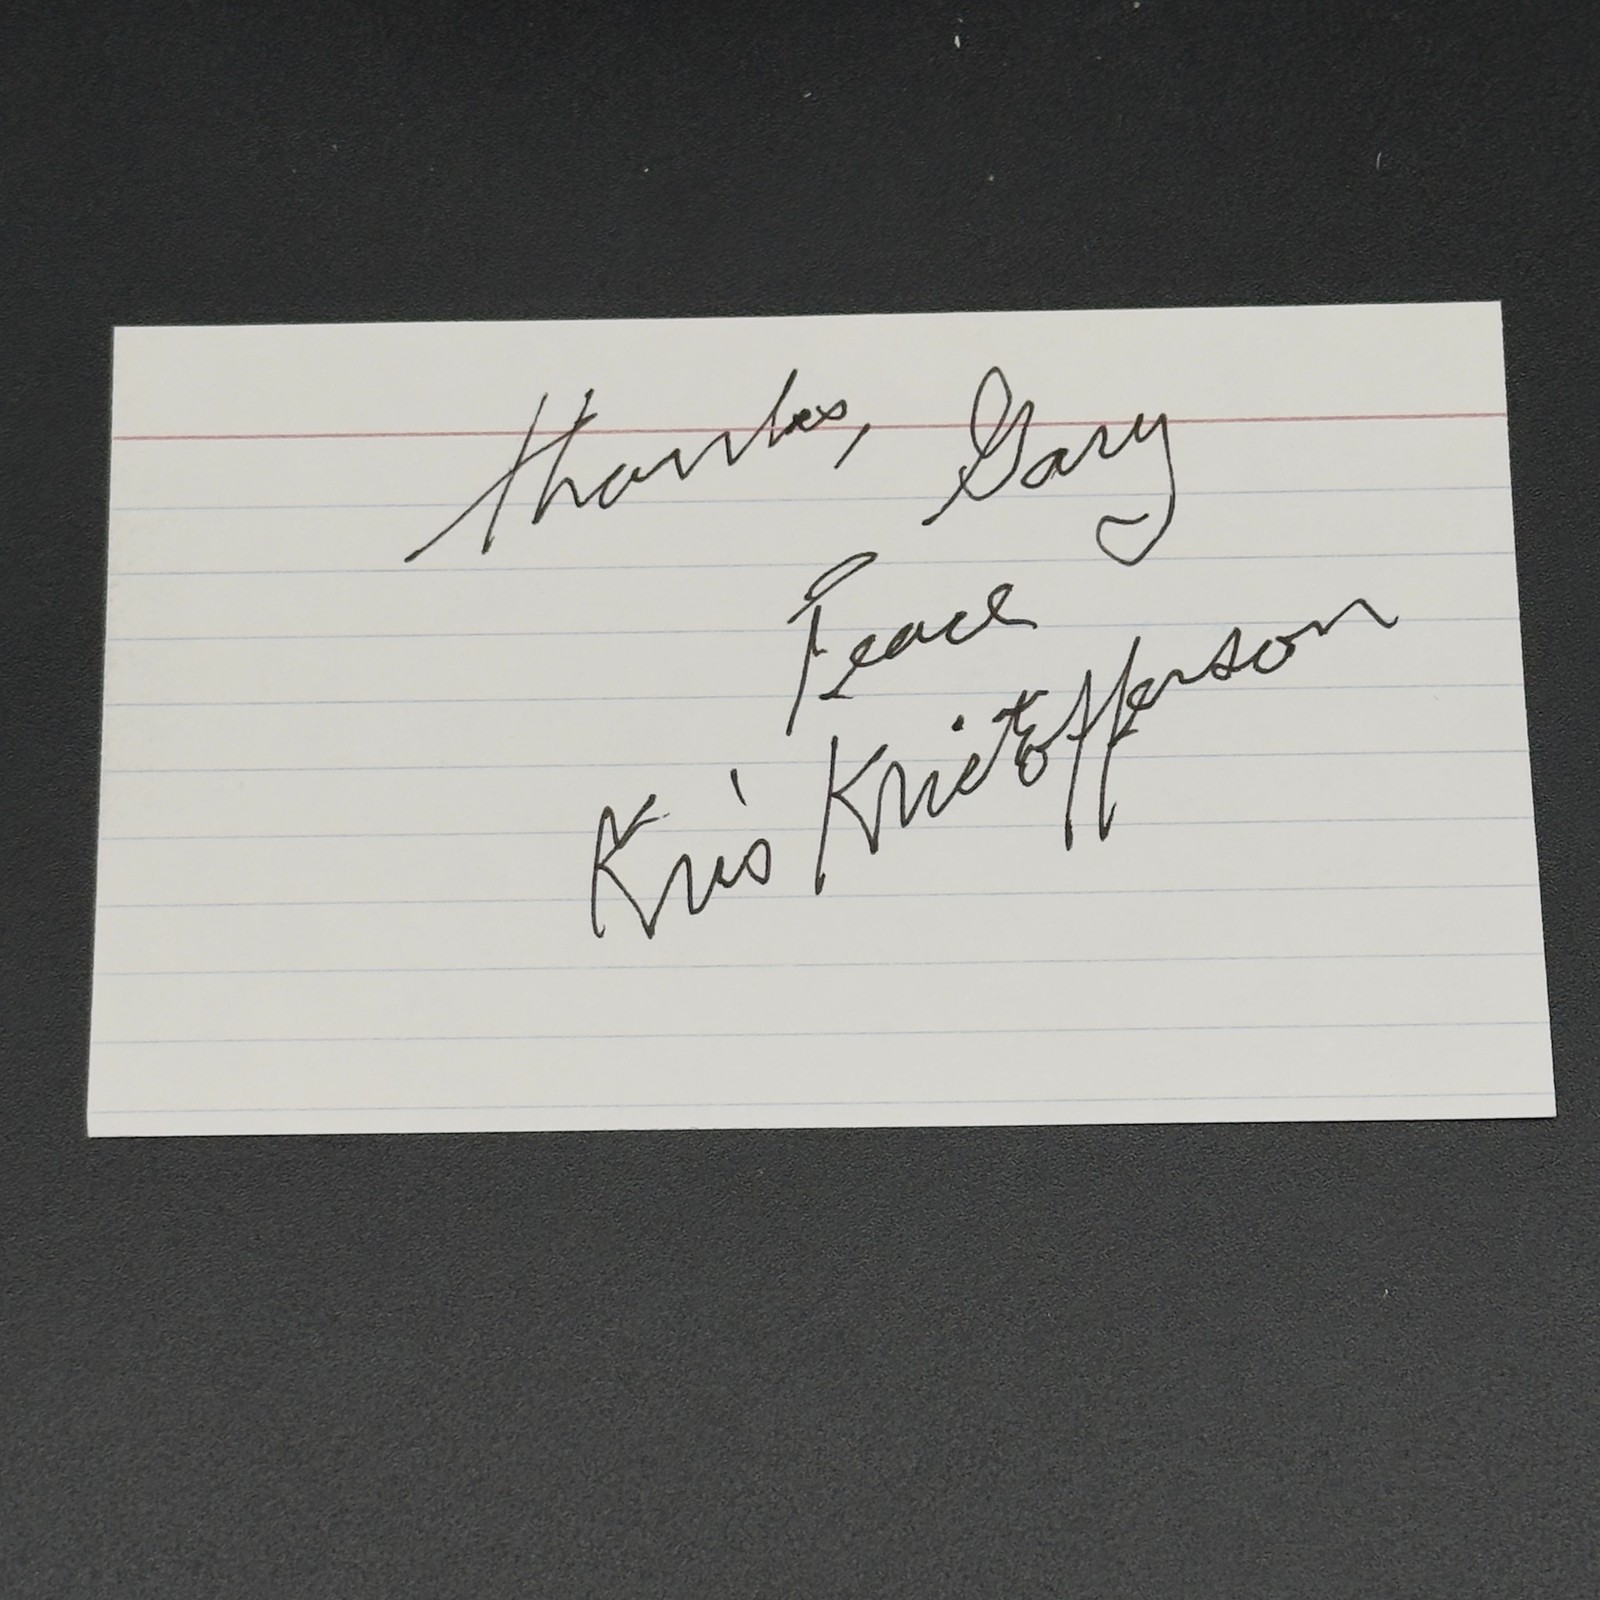 Thanks, Gary
Peace
Kris Kristofferson